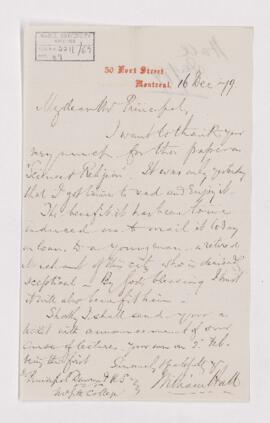 50 Fort Street
Montreal, 16 Dec 79
My dear Mr Principal,
I want to thank you
very much for the paper on
"Science & Religion". It was only yesterday
that I got time to read and enjoy it.
The benefit it has been to me
induced me to mail it today
on loan to a young man, a
of this city who is
sceptical. By God's blessing I trust
it will also benefit him.
Shortly I shall send you a
ticket with announcement of our
course of lectures, yours on 5 Feb
being the first
Sincerely &
William Hall
Principal Dawson
McGill College